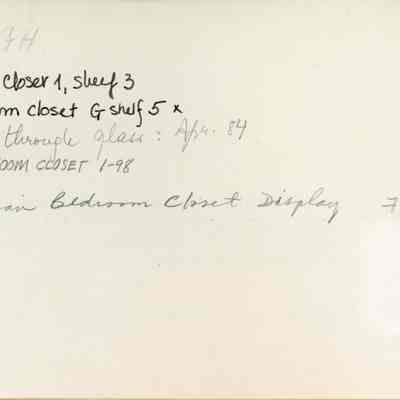 FH
Closet 1, shelf 3
m closet G shelf 5 x
through glass: Apr. 84
OOM CLOSET 1-98
ain Bedroom Closet Display 7